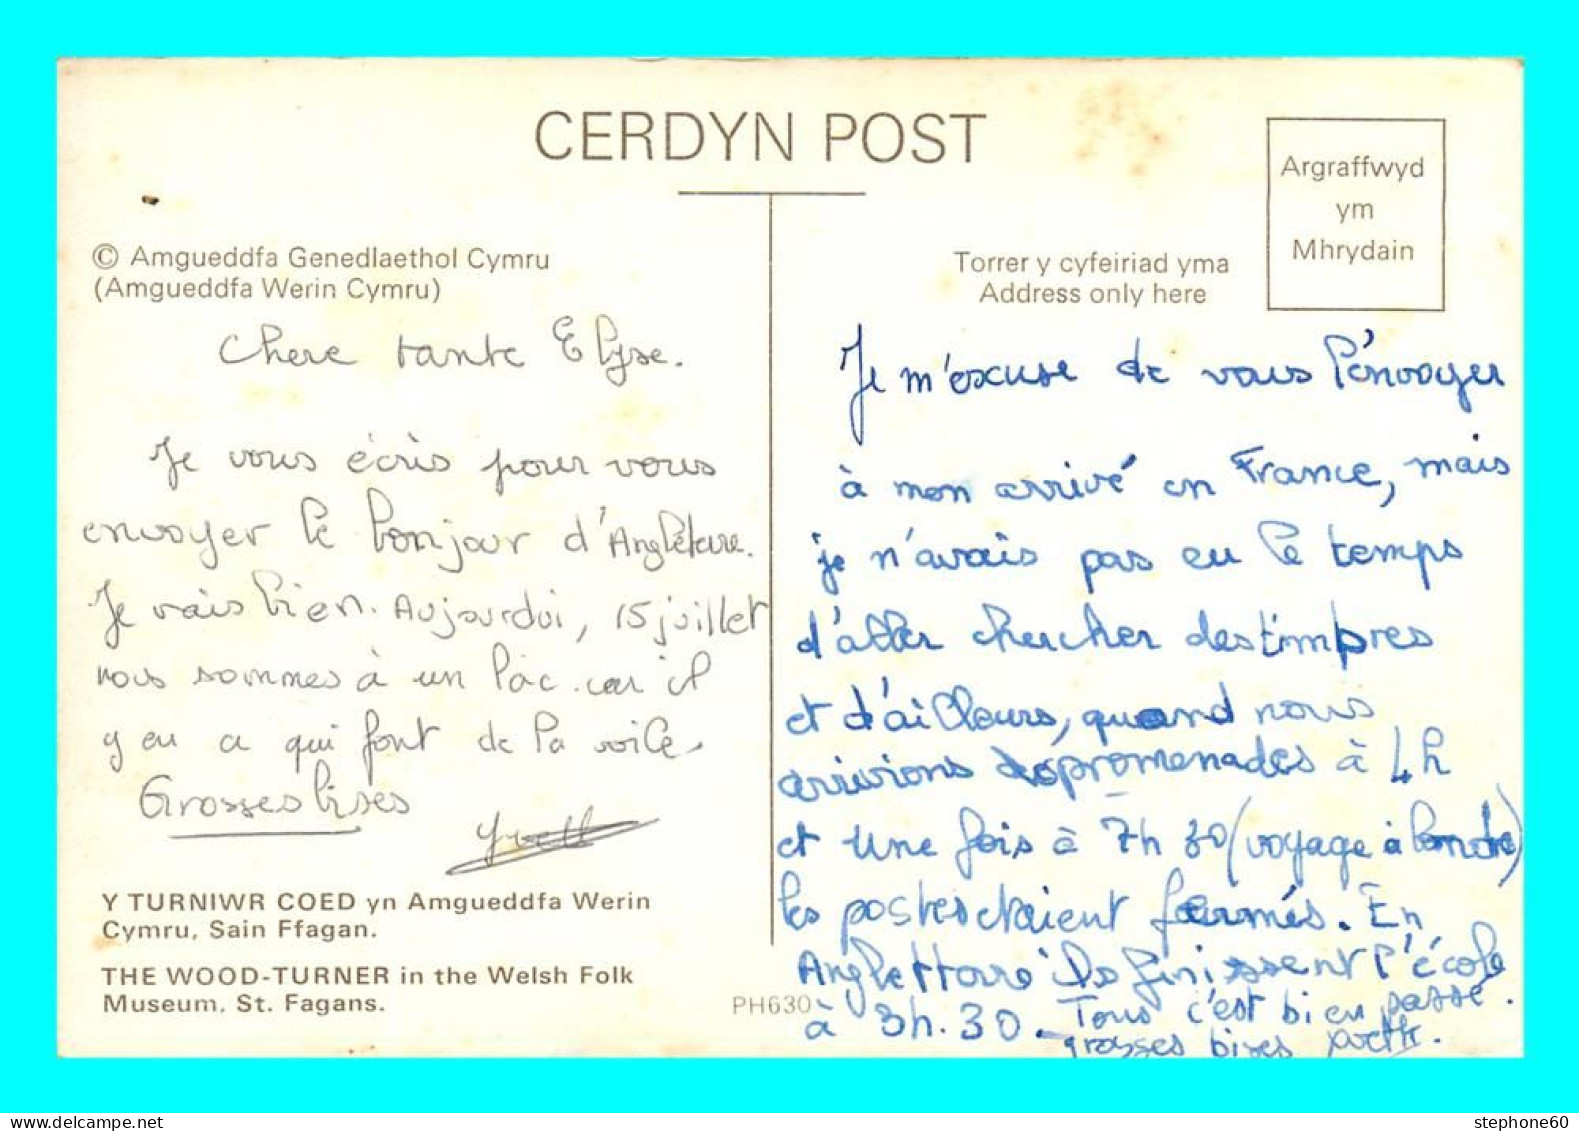 CERDYN POST
Argraffwyd
ym
Mhrydain
© Amgueddfa Genedlaethol Cymru
(Amgueddfa Werin Cymru)
Torrer y cyfeiriad yma
Address only here
Chere tante Elyse.
Je vous écris pour vous
envoyer le bonjour d'Angleterre.
Je vais bien. Aujourdui, 15 juillet
nous sommes à un lac. car il
y en a qui font de la voile.
Grosses bises
Yvett
Y TURNIWR COED yn Amgueddfa Werin
Cymru, Sain Ffagan.
THE WOOD-TURNER in the Welsh Folk
Museum. St. Fagans.
PH630
Je m'excuse de vous l'énvoyer
à mon arrivé en France, mais
je n'avais pas eu le temps
d'aller chercher des timbres
et d'ailleurs, quand nous
arrivions promenades à 4h
et une fois à 7h 30 (voyage à Londre)
les postes etaient fermés. En
Anglettere ils finissent l'école
à 3h.30. Tous c'est bien passé.
grosses bises Yvette.
stephone60